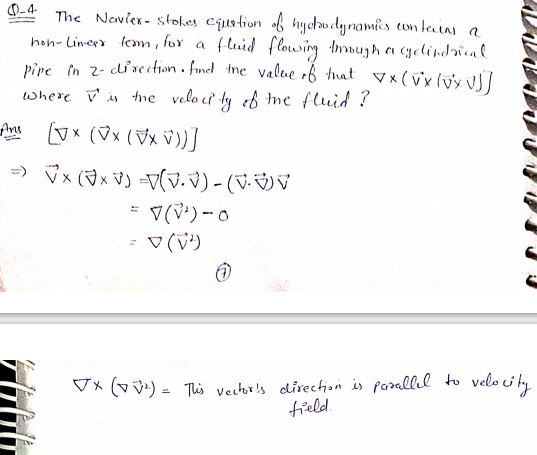 Q-4 The Navier-Stokes equation of hydrodynamics contains a
non-linear term, for a fluid flowing through a cylindrical
pipe in z-direction. find the value of that ∇×(v⃗×(∇⃗×v⃗)]
where v⃗ is the velocity of the fluid ?
Ans [∇× (v⃗× (∇⃗× v⃗))]
=> v⃗ × (∇⃗× v⃗) = ∇(v⃗.v⃗) - (v⃗.∇⃗)v⃗
= ∇(v⃗²) - 0
= ∇(v⃗²)
7
∇× (∇ v⃗²) = This vector's direction is parallel to velocity
field.